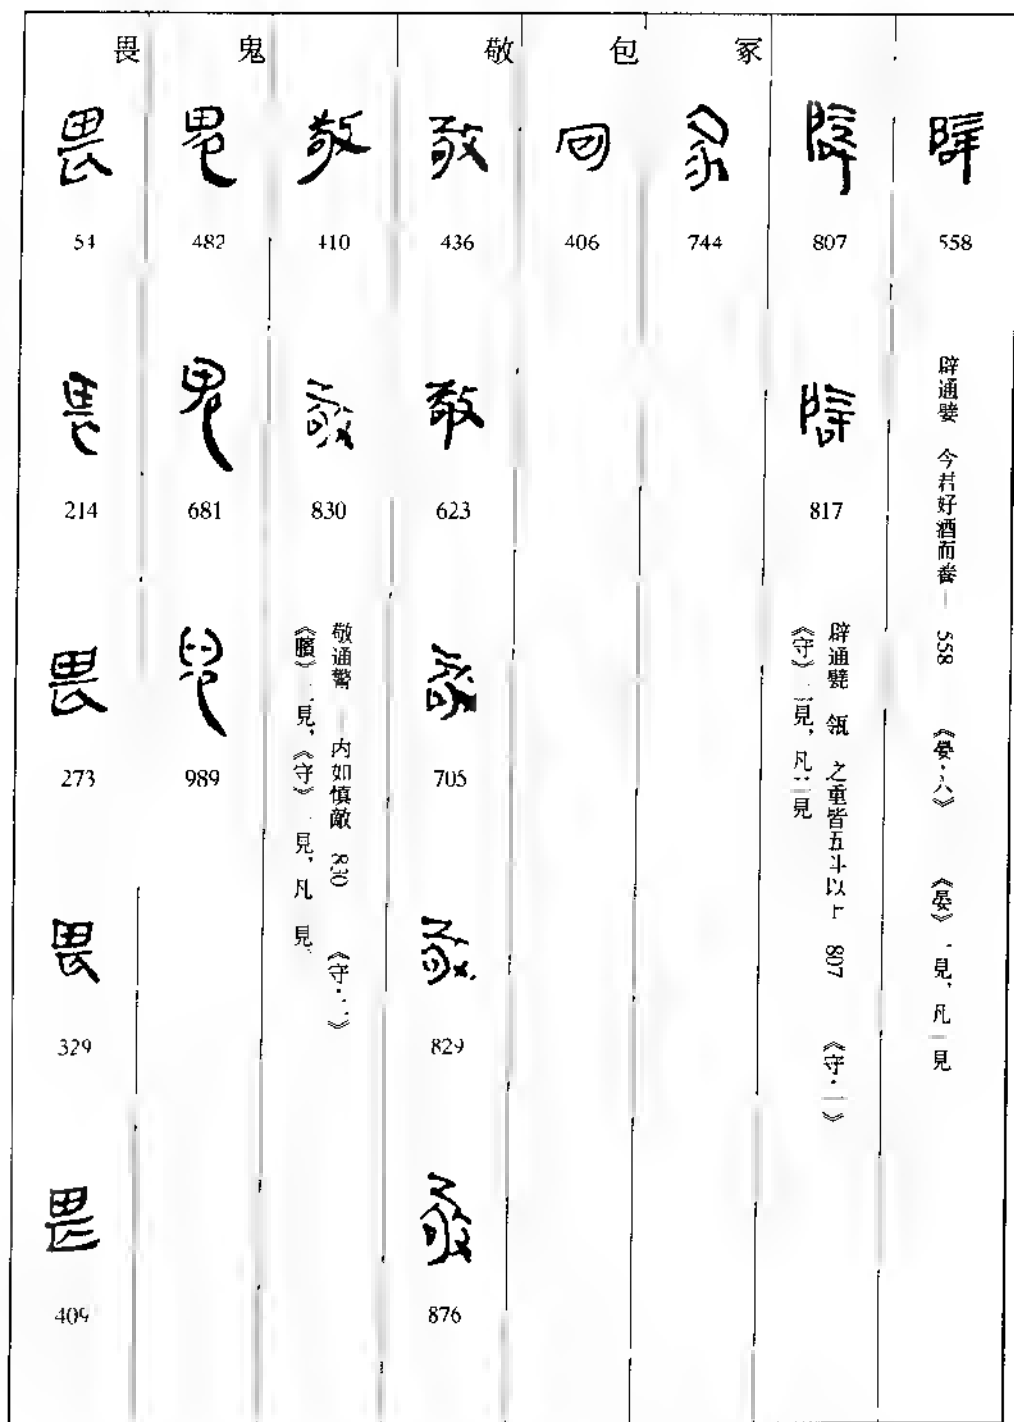 558
辟通嬖 今君好酒而養— 558 《晏·六》 《晏》一見，凡一見
807
817
辟通甓 瓴 之重皆五斗以上 807 《守·一》
《守》二見，凡二見
冢
744
包
406
敬
436
623
705
829
876
410
830
敬通警 —内如慎敵 830 《守· 》
《臏》 見，《守》一見，凡 見
鬼
482
681
989
畏
54
214
273
329
409